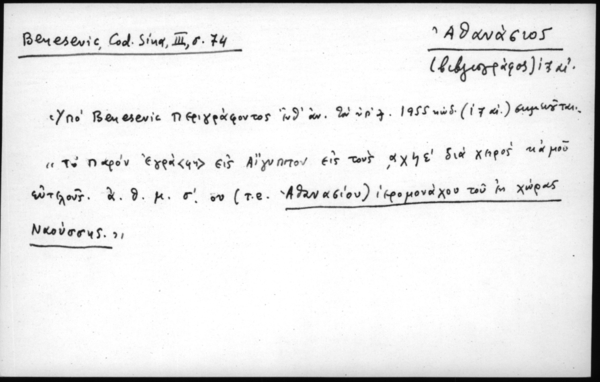 Benesevic, Cod. Sina, III, σ. 74
Ἀθανάσιος
(βιβλιογράφος) ιζ αἰ.
Ὑπό Benesevic περιγράφοντος ἀν. τόν ὑπ' ἀ. 1955 κώδ. (ιζ αἰ.) σημειοῦται.
"τό παρόν ἐγρά<φη> εἰς Αἴγυπτον εἰς τούς ͵αχξε' διά χειρός κἀμοῦ
εὐτελοῦς. ἀ. θ. μ. σ. ου (τ.ε. Ἀθανασίου) ἱερομονάχου τοῦ ἐκ χώρας
Ναούσσης."